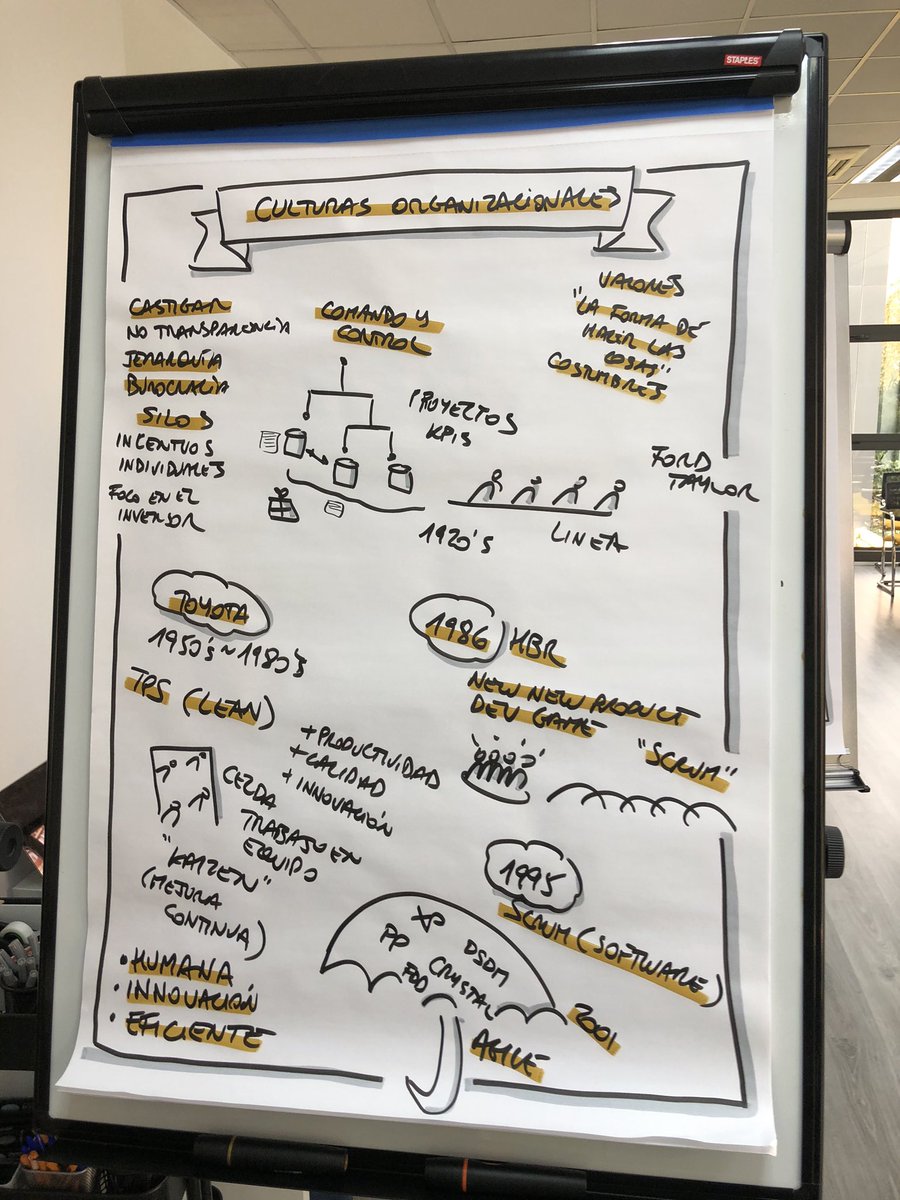 STAPLES
CULTURAS ORGANIZACIONALES
CASTIGAR
NO TRANSPARENCIA
JERARQUÍA
BUROCRACIA
SILOS
INCENTIVOS
INDIVIDUALES
FOCO EN EL
INVERSOR
COMANDO Y
CONTROL
PROYECTOS
KPIS
VALORES
"LA FORMA DE
HACER LAS
COSAS"
COSTUMBRES
FORD
TAYLOR
1920's
LINEA
TOYOTA
1950's ~ 1980's
TPS (LEAN)
+ PRODUCTIVIDAD
+ CALIDAD
+ INNOVACIÓN
CELDA
TRABAJO EN
EQUIPO
"KAIZEN"
(MEJURA
CONTINUA)
• HUMANA
• INNOVACIÓN
• EFICIENTE
1986 HBR
NEW NEW PRODUCT
DEV GAME
"SCRUM"
1995
SCRUM (SOFTWARE)
XP
PP
DSDM
FDD
CRYSTAL
2001
AGILE